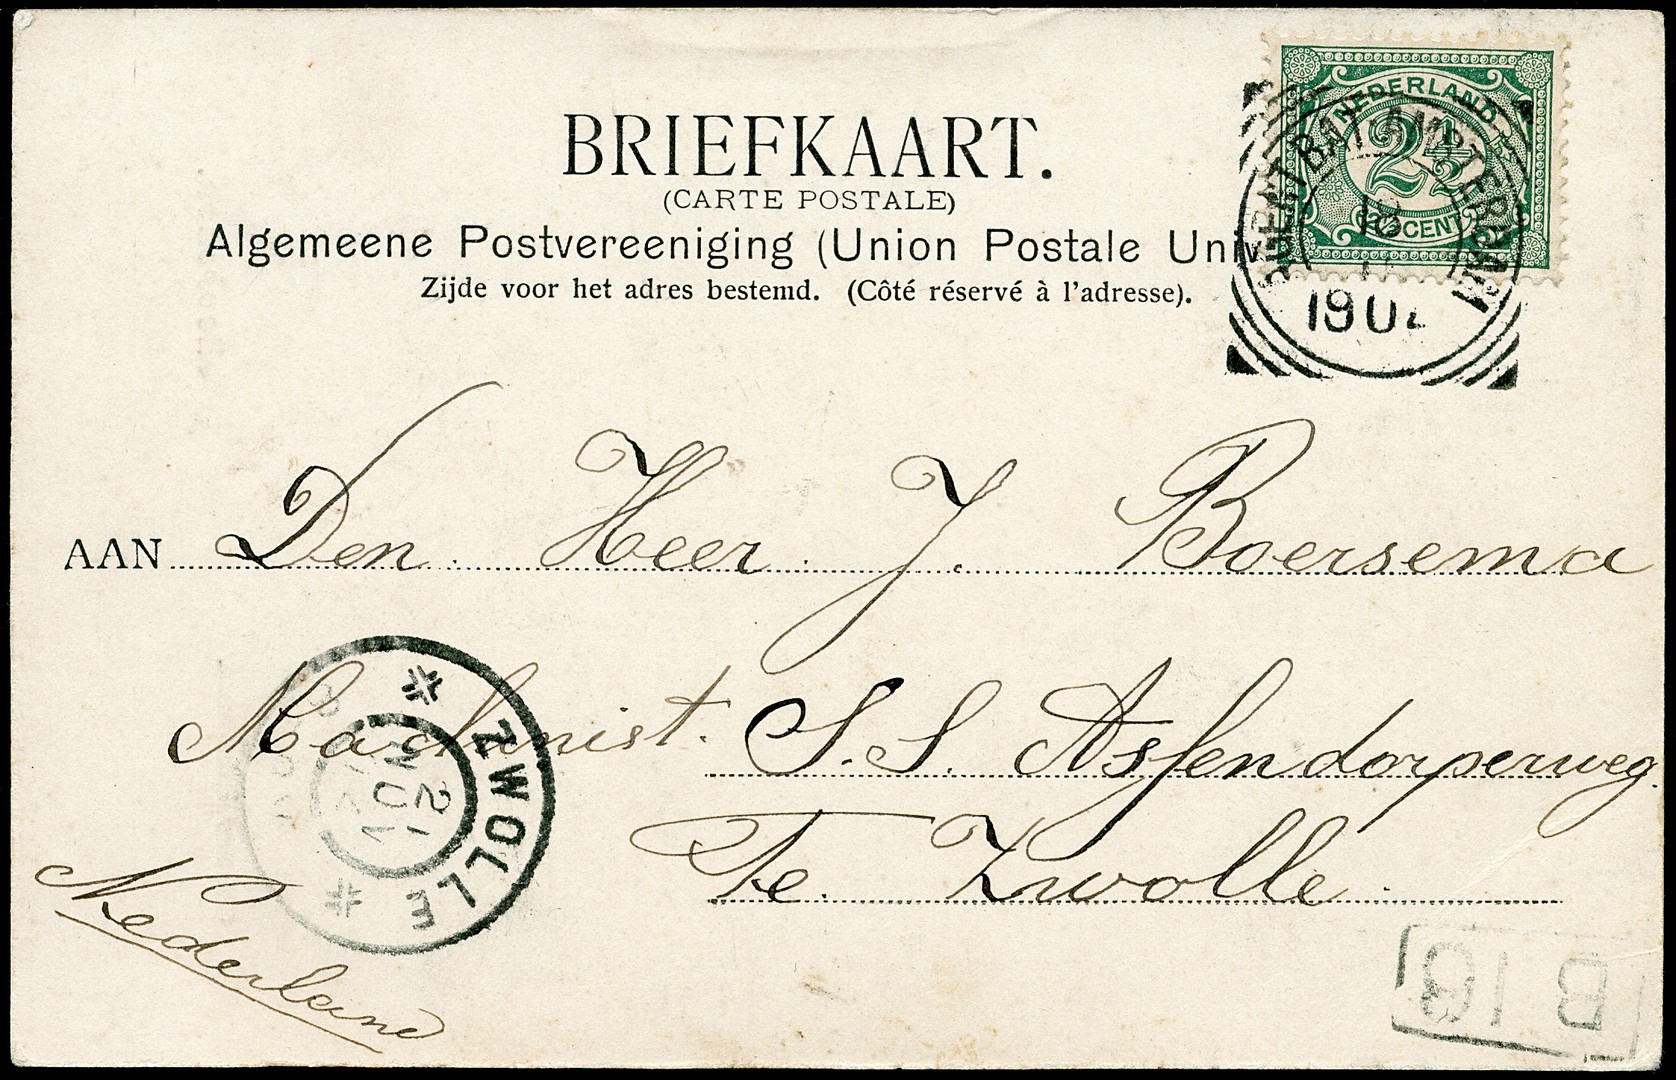 BRIEFKAART.
(CARTE POSTALE)
Algemeene Postvereeniging (Union Postale Univ
Zijde voor het adres bestemd. (Côté réservé à l'adresse).
NEDERLAND
2½
CENT
190
AAN Den Heer J. Boersema
Machinist. S.S. Assendorperweg.
Te Zwolle
Nederland
ZWOLLE
B 10